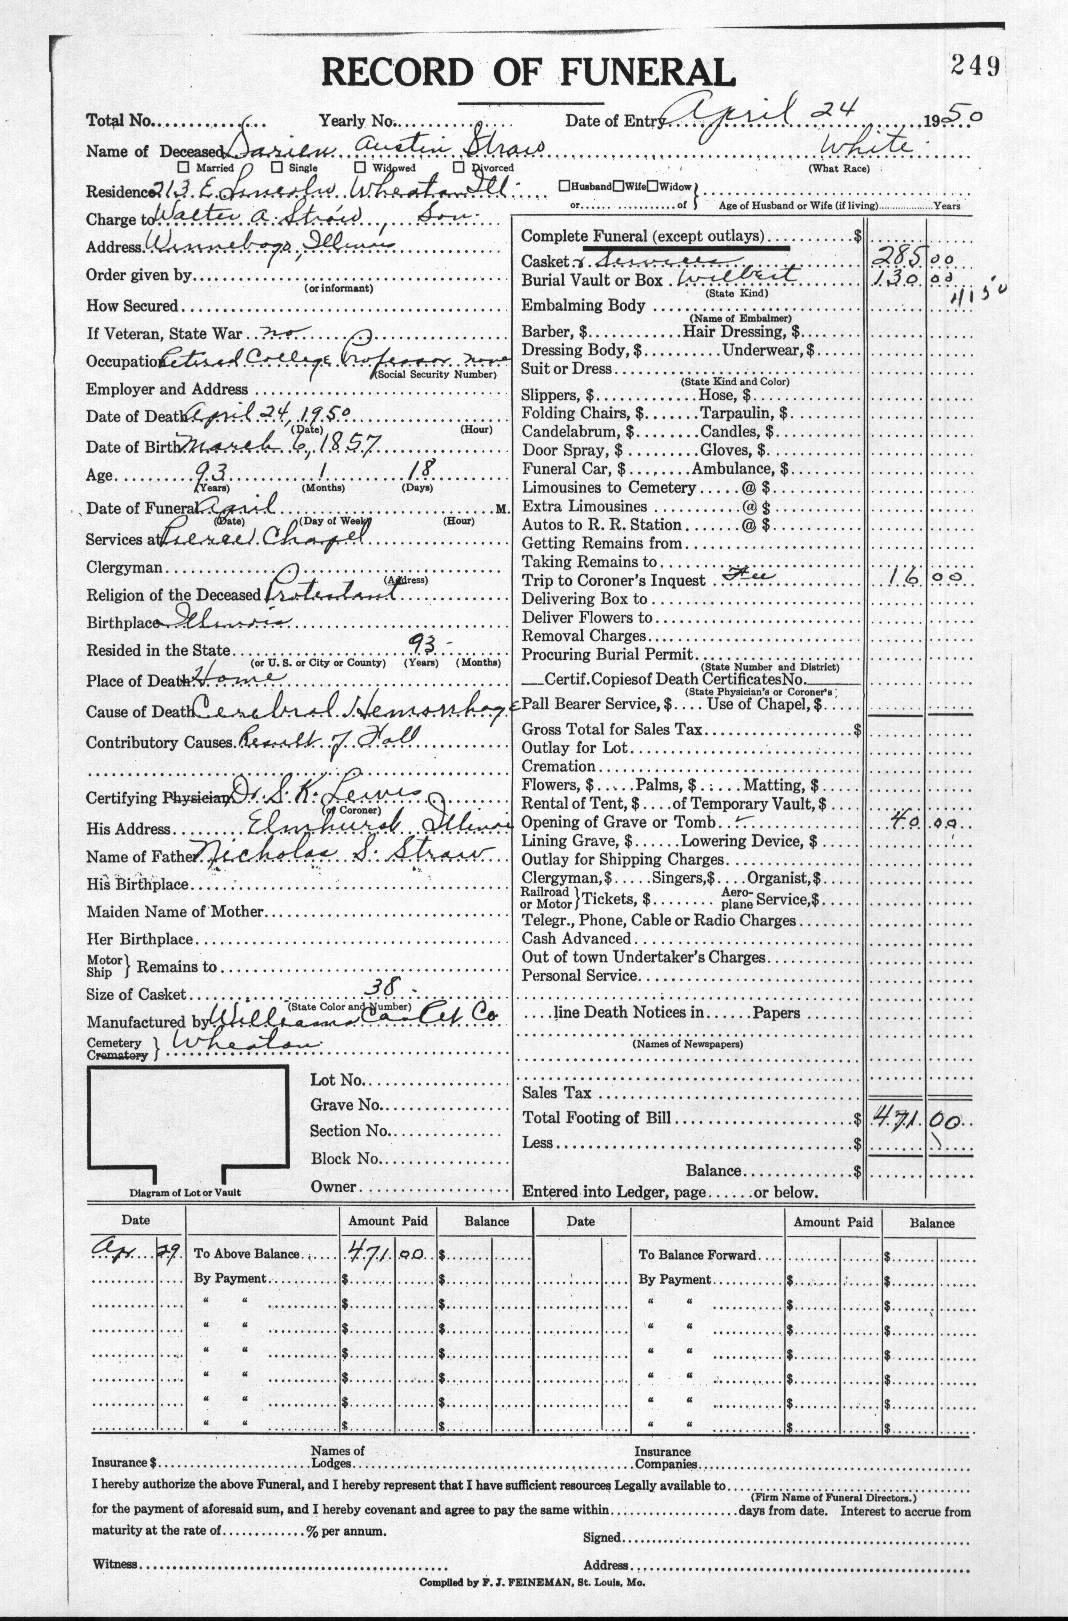 249
RECORD OF FUNERAL
Total No. Yearly No. Date of Entry April 24 1950
Name of Deceased Darien Austin Straw White
☐ Married ☐ Single ☐ Widowed ☐ Divorced (What Race)
Residence 213 E. Lincoln Wheaton Ill. ☐Husband☐Wife☐Widow}
or of Age of Husband or Wife (if living) Years
Charge to Walter A. Straw, Son.
Address Winnebago, Illinois
Order given by
(or informant)
How Secured
If Veteran, State War no
Occupation Retired College Professor none
(Social Security Number)
Employer and Address
Date of Death April 24, 1950
(Date) (Hour)
Date of Birth March 6, 1857
Age 93 1 18
(Years) (Months) (Days)
Date of Funeral April M.
(Date) (Day of Week) (Hour)
Services at Chapel
Clergyman
(Address)
Religion of the Deceased Protestant
Birthplace Illinois
Resided in the State 93 -
(or U. S. or City or County) (Years) (Months)
Place of Death Home
Cause of Death Cerebral Hemorrhage
Contributory Causes Result of Fall
Certifying Physician Dr. S. K. Lewis
(or Coroner)
His Address Elmhurst Illinois
Name of Father Nicholas S. Straw
His Birthplace
Maiden Name of Mother
Her Birthplace
Motor
Ship } Remains to
Size of Casket 38 -
(State Color and Number)
Manufactured by Williams Casket Co
Cemetery
Crematory } Wheaton
Lot No.
Grave No.
Section No.
Block No.
Owner
Diagram of Lot or Vault
Complete Funeral (except outlays) $
Casket & Services 285 00
Burial Vault or Box Wilbert 130 00
(State Kind)
4150
Embalming Body
(Name of Embalmer)
Barber, $ Hair Dressing, $
Dressing Body, $ Underwear, $
Suit or Dress
(State Kind and Color)
Slippers, $ Hose, $
Folding Chairs, $ Tarpaulin, $
Candelabrum, $ Candles, $
Door Spray, $ Gloves, $
Funeral Car, $ Ambulance, $
Limousines to Cemetery @ $
Extra Limousines @ $
Autos to R. R. Station @ $
Getting Remains from
Taking Remains to
Trip to Coroner's Inquest Fee 16 00
Delivering Box to
Deliver Flowers to
Removal Charges
Procuring Burial Permit
(State Number and District)
Certif. Copies of Death Certificates No.
(State Physician's or Coroner's)
Pall Bearer Service, $ Use of Chapel, $
Gross Total for Sales Tax $
Outlay for Lot
Cremation
Flowers, $ Palms, $ Matting, $
Rental of Tent, $ of Temporary Vault, $
Opening of Grave or Tomb ✓ 40 00
Lining Grave, $ Lowering Device, $
Outlay for Shipping Charges
Clergyman,$ Singers,$ Organist,$
Railroad or Motor } Tickets, $ Aeroplane Service,$
Telegr., Phone, Cable or Radio Charges
Cash Advanced
Out of town Undertaker's Charges
Personal Service
line Death Notices in Papers
(Names of Newspapers)
Sales Tax
Total Footing of Bill $ 471 00
Less $
Balance $
Entered into Ledger, page or below.
Date Amount Paid Balance Date Amount Paid Balance
Ap. 29 To Above Balance 471 00 $ To Balance Forward $
By Payment $ $ By Payment $ $
" " $ $ " " $ $
" " $ $ " " $ $
" " $ $ " " $ $
" " $ $ " " $ $
" " $ $ " " $ $
" " $ $ " " $ $
Insurance $ Names of Lodges Insurance Companies
I hereby authorize the above Funeral, and I hereby represent that I have sufficient resources Legally available to
(Firm Name of Funeral Directors.)
for the payment of aforesaid sum, and I hereby covenant and agree to pay the same within days from date. Interest to accrue from
maturity at the rate of % per annum.
Signed
Witness Address
Compiled by F. J. FEINEMAN, St. Louis, Mo.